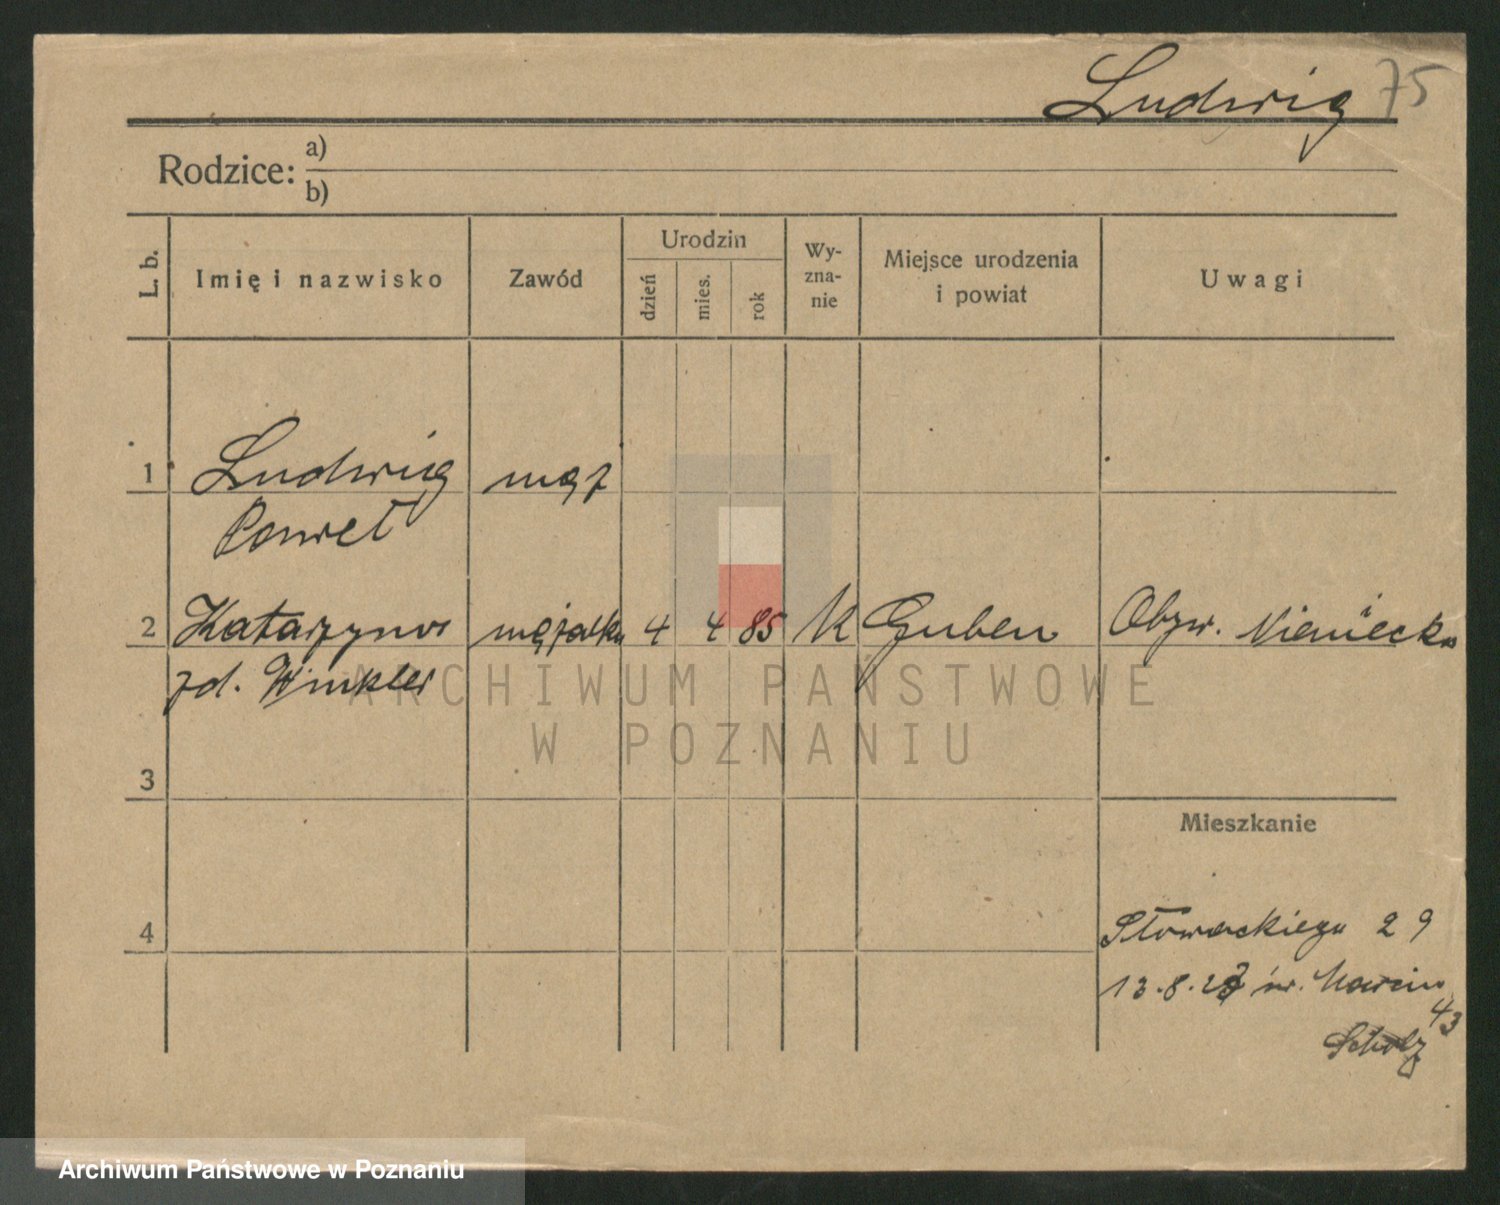 Ludwig 75
Rodzice: a)
b)
L. b.
Imię i nazwisko
Zawód
Urodzin
dzień
mies.
rok
Wy-
zna-
nie
Miejsce urodzenia
i powiat
Uwagi
1 Ludwig mąż
Paweł
2 Katarzyna mężatka 4 4 85 K Guben Obyw. Niemiecka
zd. Winkler
ARCHIWUM PAŃSTWOWE
W POZNANIU
3
Mieszkanie
4
Słowackiego 29
13.8.27 św. Marcin
43
Scholz
Archiwum Państwowe w Poznaniu